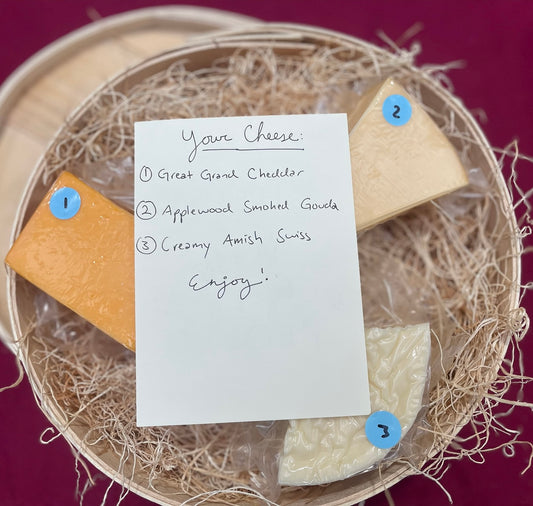 Your Cheese:
① Great Grand Cheddar
② Applewood Smoked Gouda
③ Creamy Amish Swiss
Enjoy!
1
2
3